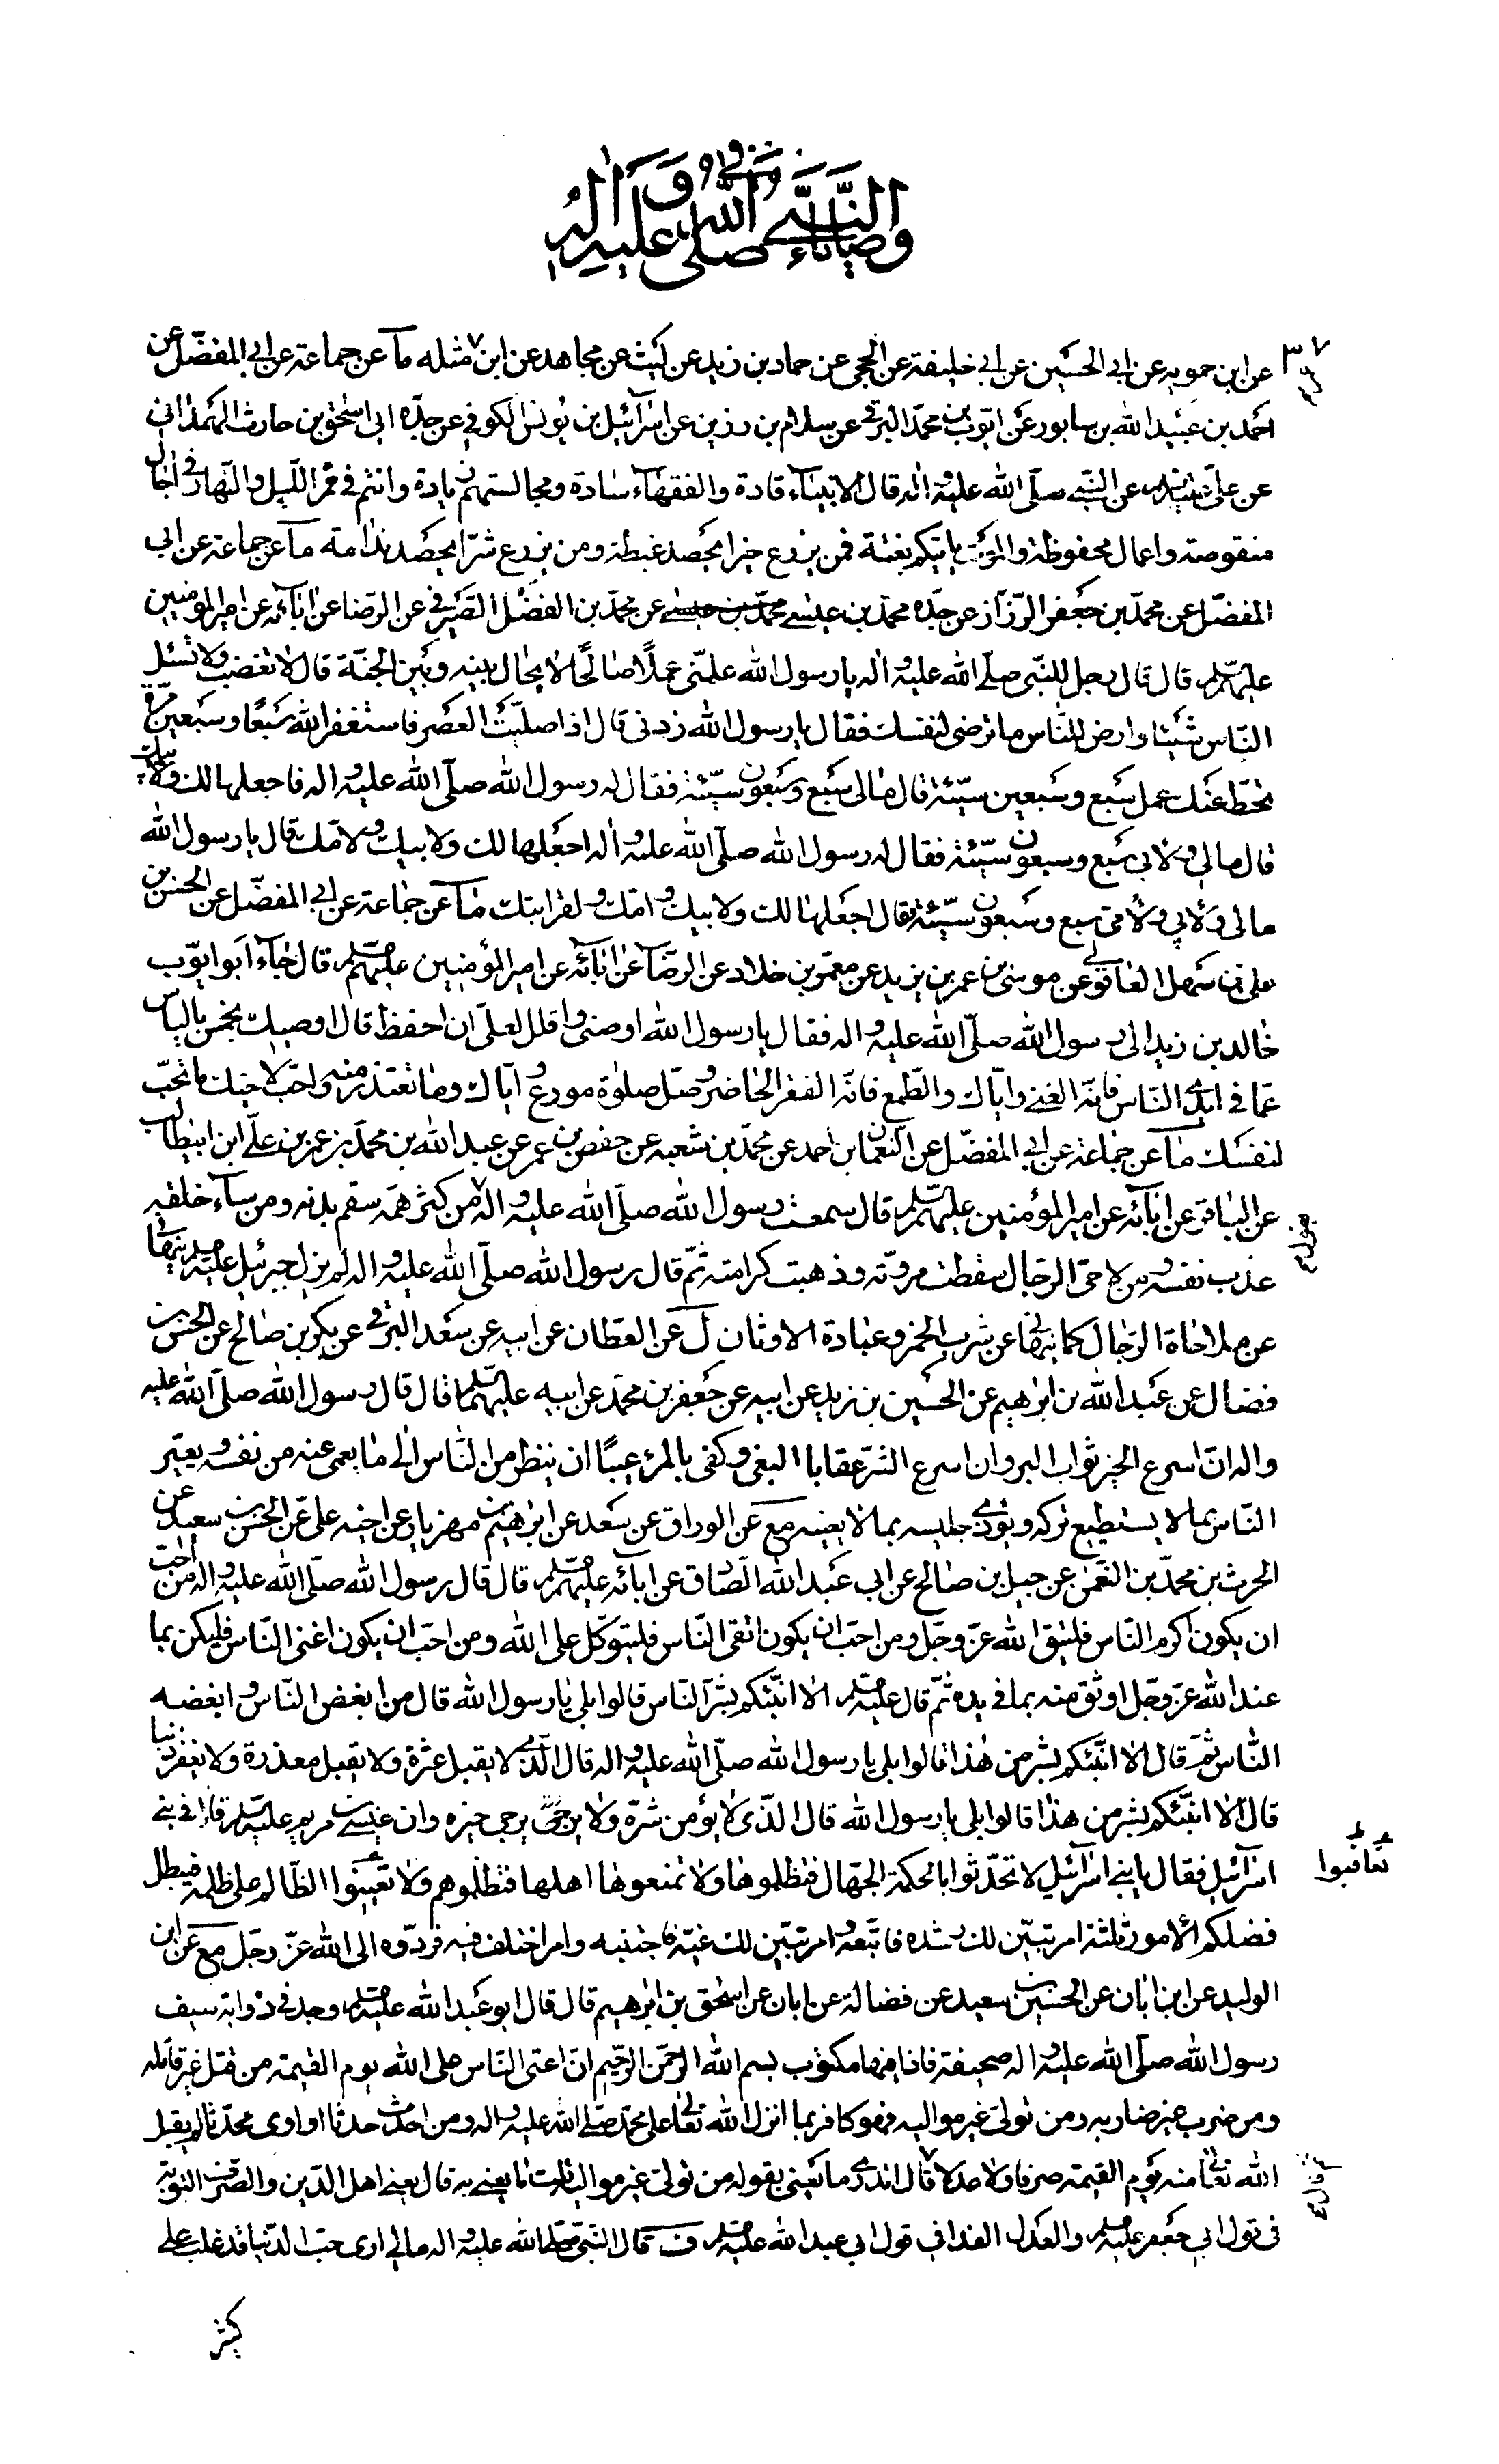 وصايا النبي صلى الله عليه وآله
٣٧
عن ابن حمويه عن ابي الحسين عن ابي خليفة عن الحجي عن حماد بن زيد عن ليث عن مجاهد عن ابن مثله ما عن جماعة عن ابي المفضّل عن
احمد بن عبيد الله بن سابور عن ايّوب بن محمّد البرقي عن سلام بن رزين عن اسرآئيل بن يونس الكوفي عن جدّه ابى اسحق بن حارث الهمدانى
عن علىّ عن النّبي صلّى الله عليه واله قال الانبيآء قادة والفقهآء سادة ومجالستهم زيادة وانتم في ممرّ اللّيل والنّهار في اجال
منقوصة واعمال محفوظة والموت ياتيكم بغتة فمن يزرع خيرا يحصد غبطة ومن يزرع شرّا يحصد ندامة ما عن جماعة عن ابي
المفضّل عن محمّد بن جعفر الرّزاز عن جدّه محمّد بن عيسى محمّد بن عيسى عن محمّد بن الفضل الصّيرفي عن الرّضا عن ابآئه عن امير المؤمنين
عليهم السّلم قال قال رجل للنّبي صلّى الله عليه واله يا رسول الله علّمنى عملًا صالحًا لا يحال بينه وبين الجنّة قال لا تغضب ولا تسئل
النّاس شيئا وارض للنّاس ما ترضى لنفسك فقال يا رسول الله زدنى قال اذا صلّيت العصر فاستغفر الله سبعًا وسبعين مرّة
تحطّ عنك عمل سبع وسبعين سيّئة قال مالى سبع وسبعون سيّئة فقال له رسول الله صلّى الله عليه واله فاجعلها لك ولابيك
قال مالي ولابي سبع وسبعون سيّئة فقال له رسول الله صلّى الله عليه واله اجعلها لك ولابيك ولامّك قال يا رسول الله
مالى ولابي ولامّي سبع وسبعون سيّئة فقال اجعلها لك ولابيك وامّك ولقرابتك ما عن جماعة عن ابي المفضّل عن الحسن بن
على بن سهل العاقولي عن موسى بن عمر بن يزيد عن معمّر بن خلاد عن الرضا عن ابآئه عن امير المؤمنين عليهم السّلم قال جآء ابو ايّوب
خالد بن زيد الى رسول الله صلّى الله عليه واله فقال يا رسول الله اوصنى واقلل لعلّى ان احفظ قال اوصيك بخمس بالياس
عمّا في ايدى النّاس فانّه الغنى وايّاك والطّمع فانّه الفقر الحاضر وصلّ صلوة مودّع وايّاك وما تعتذر منه واحبّ لاخيك ما تحبّ
لنفسك ما عن جماعة عن ابي المفضّل عن النّعمان بن احمد عن محمّد بن شعبه عن حفص بن عمر عن عبد الله بن محمّد بن عمر بن علّى ابن ابيطالب
عن الباقر عن ابآئه عن امير المؤمنين عليهم السّلم قال سمعت رسول الله صلّى الله عليه واله من كثر همّه سقم بدنه ومن سآء خلقه
عذب نفسه ومن لاحى الرّجال سقطت مروّته وذهبت كرامته ثمّ قال رسول الله صلّى الله عليه واله لم يزل جبرئيل عليه السلم ينهانى
عن ملاحاة الرّجال كما ينهاني عن شرب الخمر وعبادة الاوثان ل عن العطّان عن ابيه عن سعد البرقي عن بكر بن صالح عن الحسن بن
فضال عن عبد الله بن ابرهيم عن الحسين بن زيد عن ابيه عن جعفر بن محمّد عن ابيه عليهما السّلم قال قال رسول الله صلّى الله عليه
واله انّ اسرع الخير ثواب البر وان اسرع الشّر عقابا البغى وكفى بالمرء عيبًا ان ينظر من النّاس الى ما يعمى عنه من نفسه ويعيّر
النّاس بما لا يستطيع تركه ويؤذى جليسه بما لا يعنيه مع عن الوراق عن سعد عن ابرهيم بن مهزيار عن اخيه على عن الحسن بن سعيد عن
الحرث بن محمّد بن النعمن عن جميل بن صالح عن ابى عبد الله الصّادق عن ابآئه عليهم السّلم قال قال رسول الله صلّى الله عليه واله من احبّ
ان يكون اكرم النّاس فليتق الله عزّ وجلّ ومن احبّ ان يكون اتقى النّاس فليتوكّل على الله ومن احبّ ان يكون اغنى النّاس فليكن بما
عند الله عزّ وجلّ اوثق منه بما في يده ثمّ قال عليه السلم الا انبّئكم بشرّ النّاس قالوا بلى يا رسول الله قال من ابغض النّاس وابغضه
النّاس ثمّ قال الا انبّئكم بشر من هذا قالوا بلى يا رسول الله صلّى الله عليه واله قال الّذى لا يقبل عثرة ولا يقبل معذرة ولا يغفر ذنبا
قال الا انبّئكم بشر من هذا قالوا بلى يا رسول الله قال الّذى لا يؤمن شرّه ولا يرجى خيره وان عيسى بن مريم عليه السّلم قام في بني
اسرآئيل فقال يا بنى اسرآئيل لا تحدّثوا بالحكمة الجهّال فتظلموها ولا تمنعوها اهلها فتظلموهم ولا تعينوا الظّالم على ظلمه فيبطل
تعاقبوا
فضلكم الامور ثلثة امر تبيّن لك رشده فاتّبعه وامر تبيّن لك غيّه فاجتنبه وامر اختلف فيه فردّوه الى الله عزّ وجلّ مع عن ابن
الوليد عن ابن ابان عن الحسين بن سعيد عن فضالة عن ابان عن اسحق بن ابرهيم قال قال ابو عبد الله عليه السلم وجد في ذوابة سيف
رسول الله صلّى الله عليه واله صحيفة فاذا فيها مكتوب بسم الله الرّحمن الرّحيم انّ اعتى النّاس على الله يوم القيمة من قتل غير قاتله
ومن ضرب غير ضاربه ومن تولّى غير مواليه فهو كافر بما انزل الله تعالى على محمّد صلّى الله عليه واله ومن احدث حدثا او اوى محدثا لم يقبل
الله تعالى منه يوم القيمة صرفا ولا عدلا قال اتدرى ما يعنى بقوله من تولّى غير مواليه قلت ما يعني به قال يعني اهل الدّين والصّرف التّوبة
في قول ابي جعفر عليه السلم والعدل الفداء في قول ابي عبد الله عليه السلم ف قال النّبي صلّى الله عليه واله مالي ارى حبّ الدّنيا قد غلب على
كثير